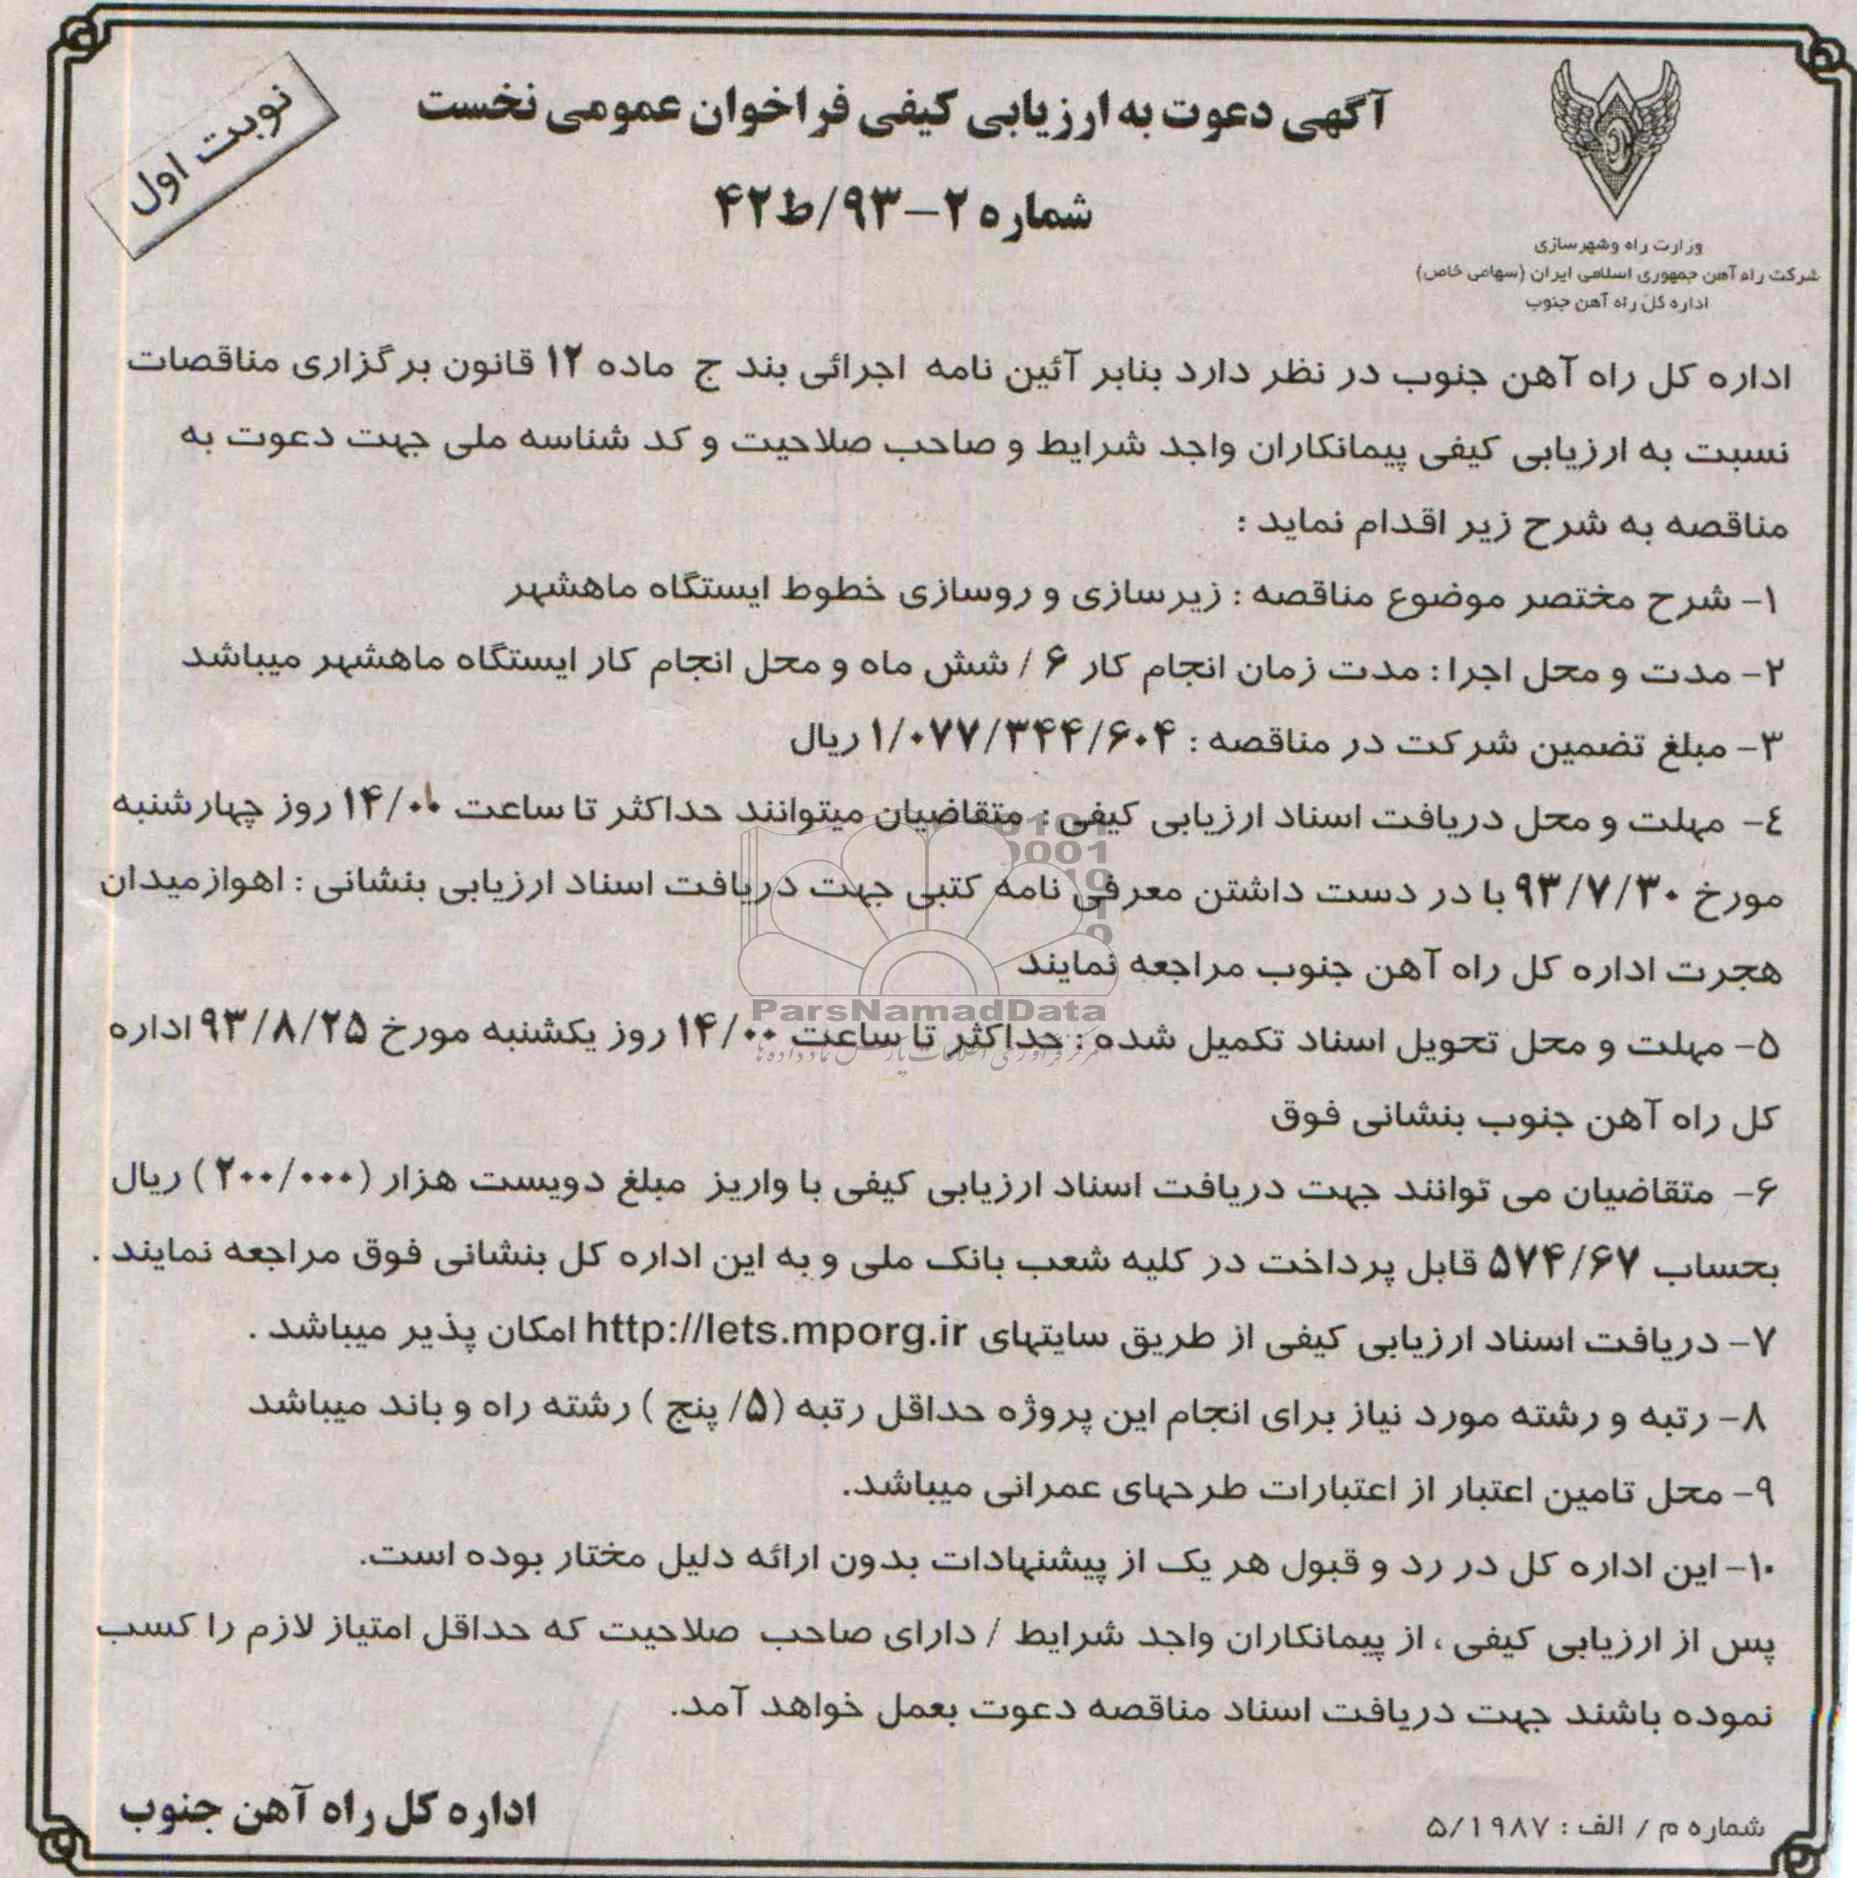 نوبت اول
آگهی دعوت به ارزیابی کیفی فراخوان عمومی نخست
شماره ۲–۹۳/ط۴۲
وزارت راه وشهرسازی
شرکت راه آهن جمهوری اسلامی ایران (سهامی خاص)
اداره کل راه آهن جنوب
اداره کل راه آهن جنوب در نظر دارد بنابر آئین نامه اجرائی بند ج ماده ۱۲ قانون برگزاری مناقصات
نسبت به ارزیابی کیفی پیمانکاران واجد شرایط و صاحب صلاحیت و کد شناسه ملی جهت دعوت به
مناقصه به شرح زیر اقدام نماید :
۱- شرح مختصر موضوع مناقصه : زیرسازی و روسازی خطوط ایستگاه ماهشهر
۲- مدت و محل اجرا : مدت زمان انجام کار ۶ / شش ماه و محل انجام کار ایستگاه ماهشهر میباشد
۳- مبلغ تضمین شرکت در مناقصه : ۱/۰۷۷/۳۴۴/۶۰۴ ریال
٤- مهلت و محل دریافت اسناد ارزیابی کیفی : متقاضیان میتوانند حداکثر تا ساعت ۱۴/۰۰ روز چهارشنبه
مورخ ۹۳/۷/۳۰ با در دست داشتن معرفی نامه کتبی جهت دریافت اسناد ارزیابی بنشانی : اهوازمیدان
هجرت اداره کل راه آهن جنوب مراجعه نمایند
ParsNamadData
۵- مهلت و محل تحویل اسناد تکمیل شده : حداکثر تا ساعت ۱۴/۰۰ روز یکشنبه مورخ ۹۳/۸/۲۵ اداره
کل راه آهن جنوب بنشانی فوق
۶- متقاضیان می توانند جهت دریافت اسناد ارزیابی کیفی با واریز مبلغ دویست هزار (۲۰۰/۰۰۰) ریال
بحساب ۵۷۴/۶۷ قابل پرداخت در کلیه شعب بانک ملی و به این اداره کل بنشانی فوق مراجعه نمایند .
۷- دریافت اسناد ارزیابی کیفی از طریق سایتهای http://lets.mporg.ir امکان پذیر میباشد .
۸- رتبه و رشته مورد نیاز برای انجام این پروژه حداقل رتبه (۵/ پنج ) رشته راه و باند میباشد
۹- محل تامین اعتبار از اعتبارات طرحهای عمرانی میباشد.
۱۰- این اداره کل در رد و قبول هر یک از پیشنهادات بدون ارائه دلیل مختار بوده است.
پس از ارزیابی کیفی ، از پیمانکاران واجد شرایط / دارای صاحب صلاحیت که حداقل امتیاز لازم را کسب
نموده باشند جهت دریافت اسناد مناقصه دعوت بعمل خواهد آمد.
اداره کل راه آهن جنوب
شماره م / الف : ۵/۱۹۸۷